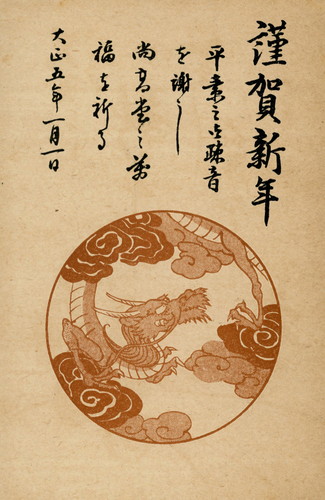 謹賀新年
平素之御疎音
を謝し
尚高堂之萬
福を祈る
大正五年一月一日